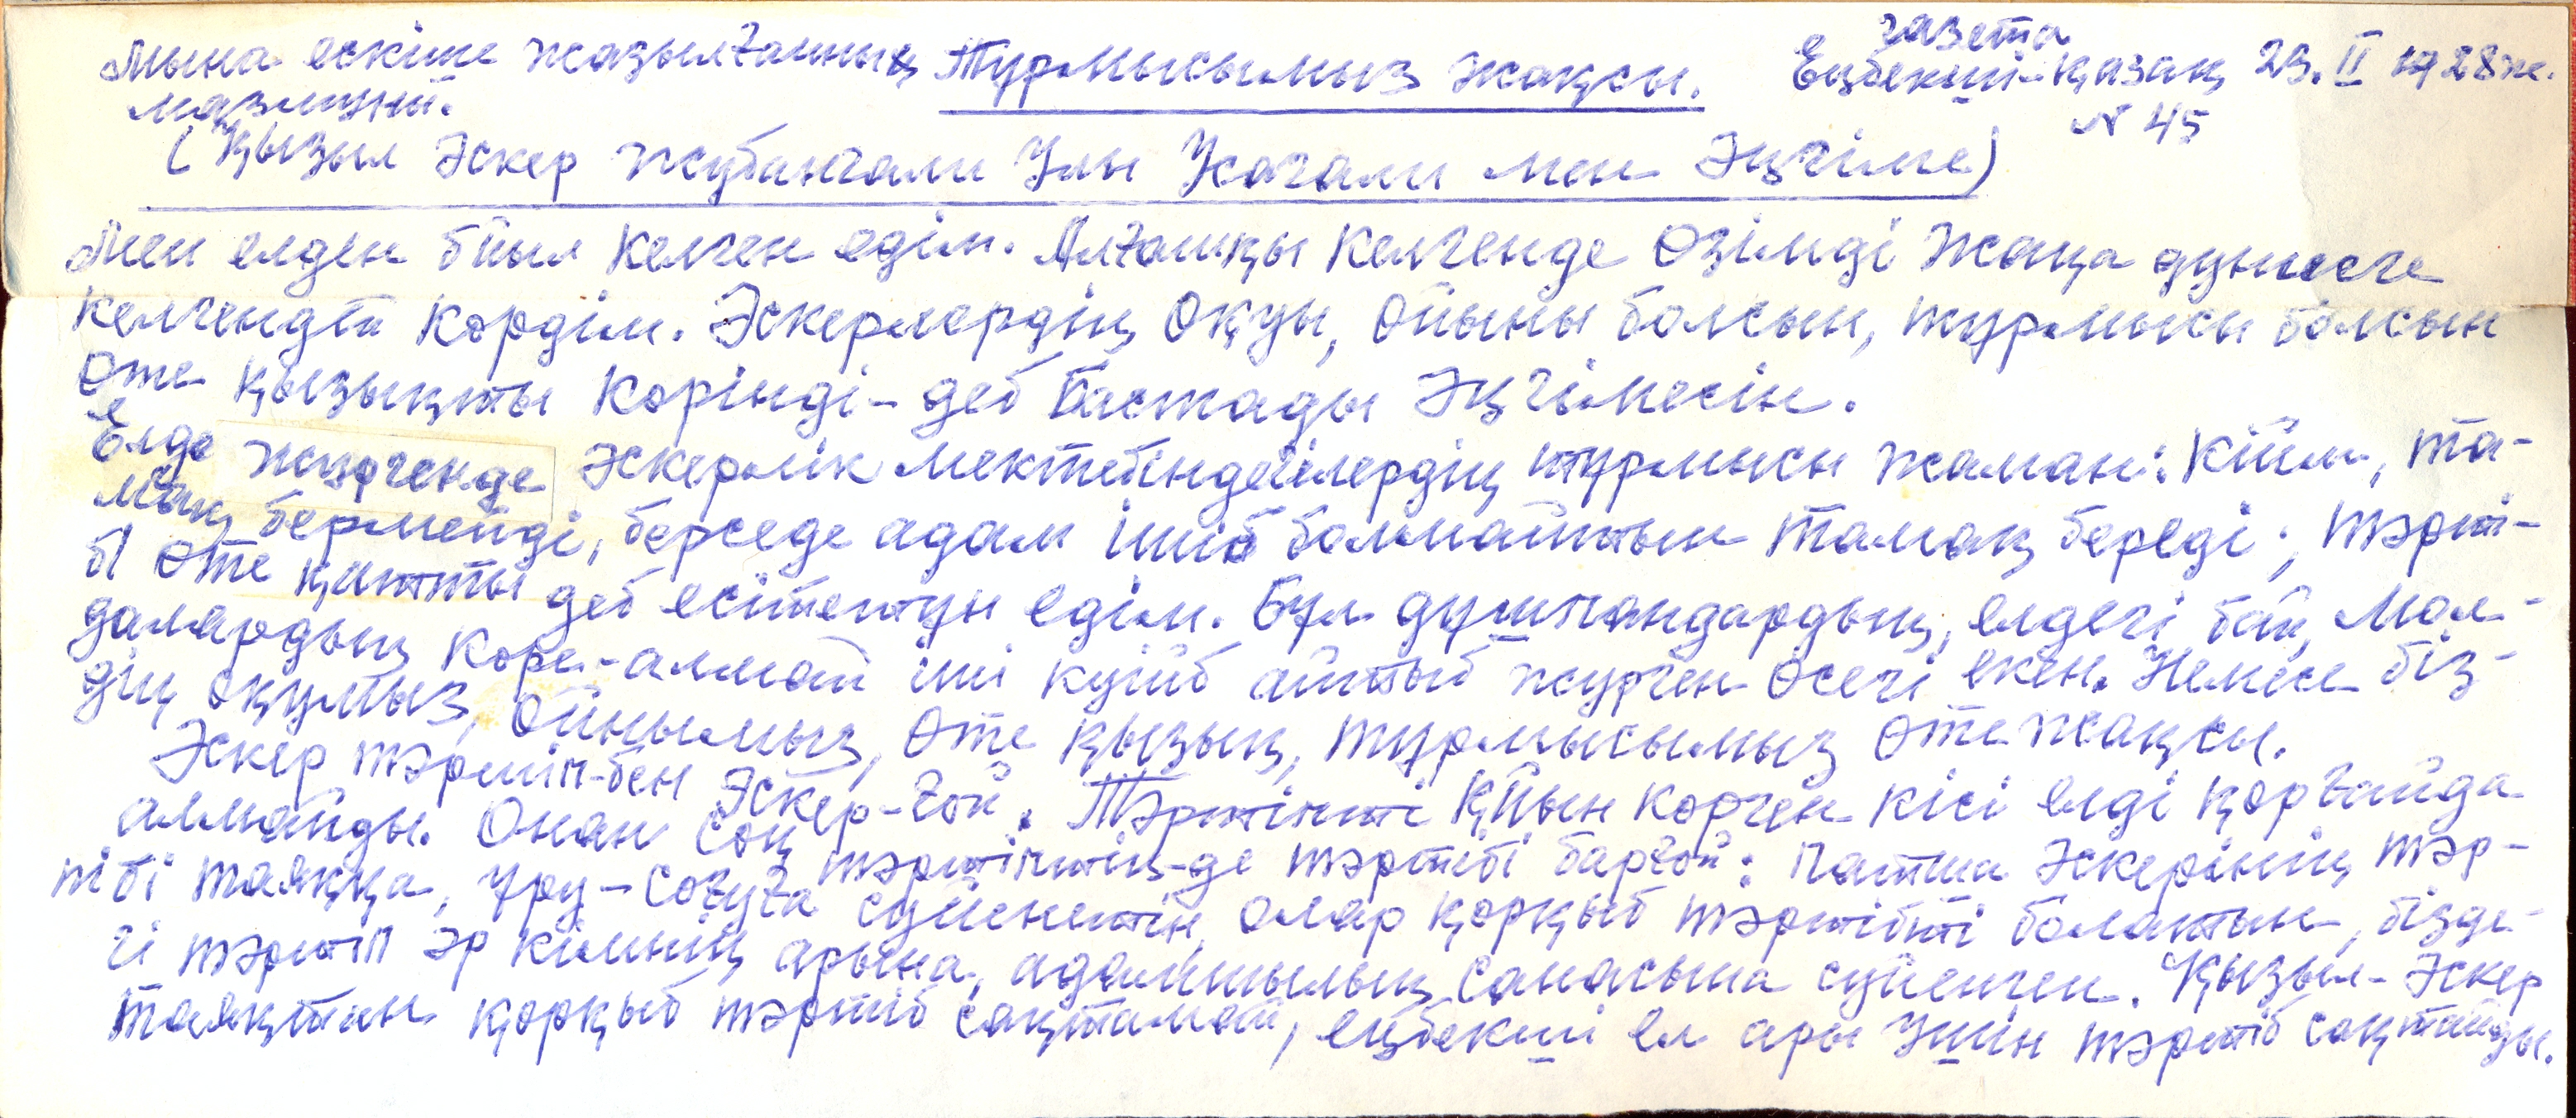 Мына ескіше жазылғанның Тұрмысымыз жақсы. газета Еңбекші-қазақ 23.II 1928ж.
мазмұны. N 45
(Қызыл Әскер Жұбанғали Ұлы Усағали мен Әңгіме)
Мен елден биыл келген едім. Алғашқы келгенде өзімді жаңа дүниеге
келгендей көрдім. Әскерлердің оқуы, ойыны болсын, тұрмысы болсын
өте қызықты көрінді - деб бастады әңгімесін.
Елде жүргенде әскерлік мектебіндегілердің тұрмысы жаман: киім, та-
мақ бермейді, берседе адам ішіб болмайтын тамақ береді; тәрті-
бі өте қатты деб еситетұн едім. Бұл дұшпандардың, елдегі бай, мол-
далардың көре-алмай іші күйіб айтыб жүрген өсегі екен. Немесе біз-
дің оқумыз, ойнымыз, өте қызық, тұрмысымыз өте жақсы.
Әскер тәртіп-бен Әскер-ғой. Тәртіпті қйын көрген кісі елді қорғайда
алмайды. Онан соң тәртіптің-де тәртібі барғой: патша әскерінің тәр-
тібі таяққа, ұру-соғуға сүйенетін, олар қорқыб тәртібті болатын, бізде-
гі тәртіп әр кімнің арына, адамшылық санасына сүйенген. Қызыл-Әскер
таяқтан қорқыб тәртіб сақтамай, еңбекші ел ары үшін тәртіб сақтайды.